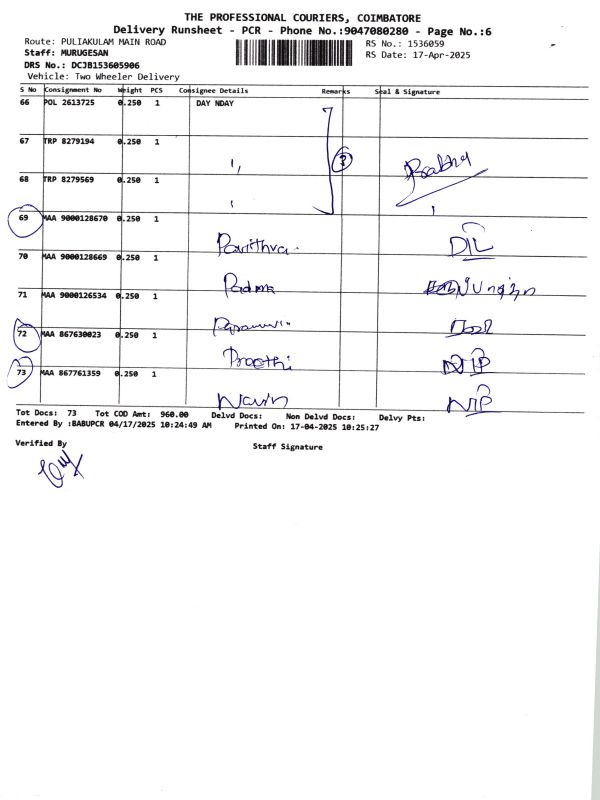 THE PROFESSIONAL COURIERS, COIMBATORE
Delivery Runsheet - PCR - Phone No.:9047080280 - Page No.:6
Route: PULIAKULAM MAIN ROAD
RS No.: 1536059
Staff: MURUGESAN
RS Date: 17-Apr-2025
DRS No.: DCJB153605906
Vehicle: Two Wheeler Delivery
S No Consignment No Weight PCS Consignee Details Remarks Seal & Signature
66 POL 2613725 0.250 1 DAY NDAY
67 TRP 8279194 0.250 1
68 TRP 8279569 0.250 1
69 MAA 9000128670 0.250 1 Pavithra
70 MAA 9000128669 0.250 1 Padma
71 MAA 9000126534 0.250 1
72 MAA 867630023 0.250 1 Preethi
73 MAA 867761359 0.250 1 Navin
Tot Docs: 73 Tot COD Amt: 960.00 Delvd Docs: Non Delvd Docs: Delvy Pts:
Entered By :BABUPCR 04/17/2025 10:24:49 AM Printed On: 17-04-2025 10:25:27
Verified By
Staff Signature